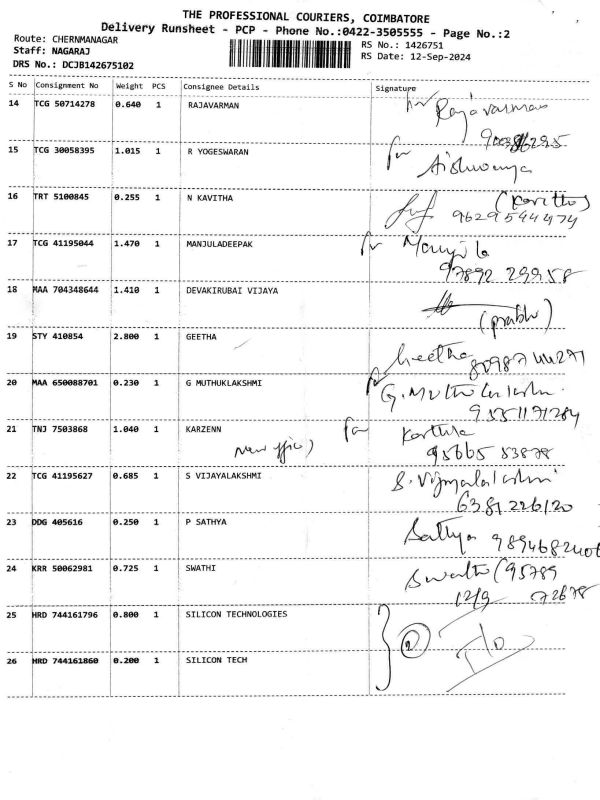 THE PROFESSIONAL COURIERS, COIMBATORE
Delivery Runsheet - PCP - Phone No.:0422-3505555 - Page No.:2
Route: CHERNMANAGAR
RS No.: 1426751
Staff: NAGARAJ
RS Date: 12-Sep-2024
DRS No.: DCJB142675102
S No Consignment No Weight PCS Consignee Details Signature
14 TCG 50714278 0.640 1 RAJAVARMAN Rajavarman
15 TCG 30058395 1.015 1 R YOGESWARAN for Aishwarya
16 TRT 5100845 0.255 1 N KAVITHA (Kavitha)
9629544474
17 TCG 41195044 1.470 1 MANJULADEEPAK for Manjula
97892 29958
18 MAA 704348644 1.410 1 DEVAKIRUBAI VIJAYA
(prabhu)
19 STY 410854 2.800 1 GEETHA Geetha
8098744271
20 MAA 650088701 0.230 1 G MUTHUKLAKSHMI G. Muthulakshmi
21 TNJ 7503868 1.040 1 KARZENN for Karthik
95665 83878
22 TCG 41195627 0.685 1 S VIJAYALAKSHMI S. Vijayalakshmi
6381226120
23 DDG 405616 0.250 1 P SATHYA Sathya 9894682406
24 KRR 50062981 0.725 1 SWATHI Swathi (95789
12/9 72678
25 HRD 744161796 0.800 1 SILICON TECHNOLOGIES
2
26 HRD 744161860 0.200 1 SILICON TECH